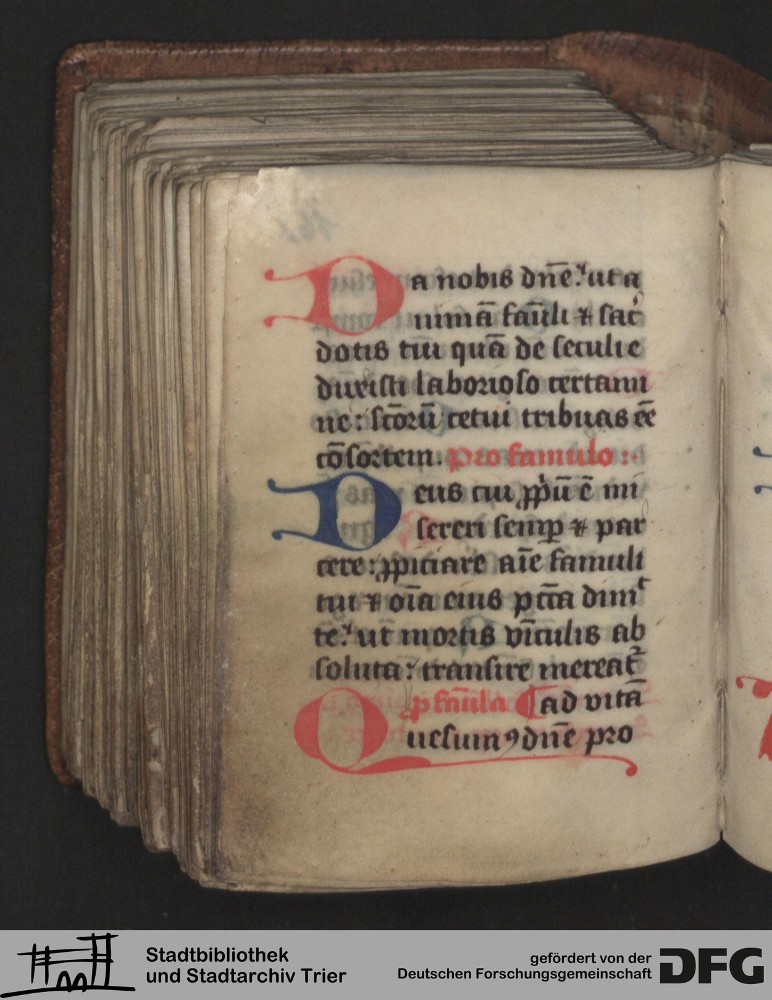 Da nobis dn̄e: ut a
nimā fāuli ⁊ sac̓
dotis tui quā de seculi e
duxisti laborioso certami
ne: sc̄oꝝ cetui tribuas eē
cōsortem. Pro famulo:
Deus cui ꝓpū ē mi
sereri semꝑ ⁊ par
cere: ꝓpiciare aīe famuli
tui ⁊ oīa eius pc̄ca dimit
te: ut mortis vīculis ab
soluta: transire mereat᷑
ꝓ fāula ad vitā
Quesumꝯ dn̄e pro
Stadtbibliothek
und Stadtarchiv Trier
gefördert von der
Deutschen Forschungsgemeinschaft
DFG